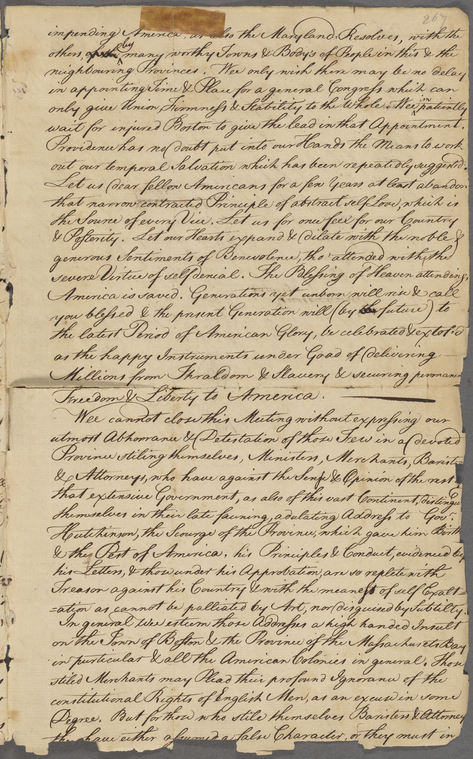 267
impending America, as also the Maryland Resolves, with the
others, by many worthy Towns & Body's of People in this & the
neighbouring Provinces. Wee only wish there may be no delay
in appointing Time & Place for a general Congress which can
only give Union Firmness & Stability to the Whole. Wee impatiently
wait for injured Boston to give the lead in that Appointment.
Providence has no doubt put into our Hands the Means to work
out our temporal Salvation which has been repeatedly suggested.
Let us (dear fellow Americans for a few Years at least abandon
that narrow contracted Principle of abstract self Love, which is
the Source of every Vice. Let us for once feel for our Country
& Posterity. Let our Hearts expand & dilate with the noble &
generous Sentiments of Benevolence, tho' attended with the
severe Virtue of self denial. The Blessing of Heaven attending,
America is saved. Generations yet unborn will rise & call
you blessed & the present Generation will (by the future) to
the latest Period of American Glory, be celebrated & extol'd
as the happy Instruments under Goad of delivering
Millions from Thraldom & Slavery & securing permanent
Freedom & Liberty to America.
Wee cannot close this Meeting without expressing our
utmost Abhorrance & Detestation of those Few in a devoted
Province stileing themselves, Ministers, Merchants, Baristers
& Attorneys, who have against the Sense & Opinion of the rest
that extensive Government, as also of this vast Continent, distingue
themselves in their late fawning, adulating Address to Govr.
Hutchinson, the Scourge of the Province, which gave him Birth
& the Pest of America. his Principles & Conduct, evidenced by
his Letters, & those under his Approbation, are so replete with
Treason against his Country & with the meanest of self Exalt
=ation as cannot be palliated by Art, nor disguised by Subtilty.
In general Wee esteem those Addresses a high handed Insult
on the Town of Boston & the Province of the Massachusetts Bay
in particular & all the American Colonies in general. Those
stiled Merchants may Plead their profound Ignorance of the
constitutional Rights of English Men, as an excuse in some
Degree. But for those who stile themselves Baristers & Attorneys
they have either assumed a false Character, or they must in